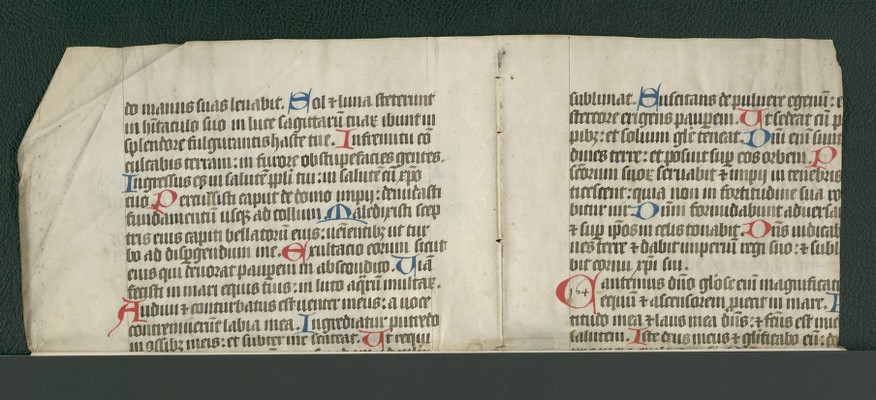 do manus suas leuabit. Sol ⁊ luna steterunt
in hītaculo suo in luce sagittarū tuar ibunt in
splendore fulgurantis haste tue. In fremitu cō
culcabis terram: in furore obstupefacies gentes.
Ingressus es in salutem ppli tui: in salutē cū xp̄o
tuo. Percussisti caput de domo impii: denudasti
fundamentum usq; ad collum. Maledixisti scep
tris eius capiti bellatorū eius: uenientib; ut tur
bo ad disꝑgendum me. Exultacio eorum sicut
eius qui deuorat pauꝑem in abscondito. Uiā
fecisti in mari equis tuis: in luto aqrū multar.
Audiui ⁊ conturbatus est uenter meus: a uoce
contremuerūt labia mea. Ingrediatur putredo
in ossib; meis: et subter me scateat. Ut requi
sublimat. Suscitans de puluere egenū: e
stercore erigens pauꝑem. Ut sedeat cū p
pib;: et solium gl̄e teneat. Dn̄i eni͞m sunt
dines terre: et posuit sup eos orbem. P
sc̄orum suor seruabit ⁊ impii in tenebris
ticescent: quia non in fortitudine sua ro
bitur uir. Dn̄m formidabunt aduersa
⁊ suꝑ ip̄os in celis tonabit. Dn̄s iudicab
nes terre ⁊ dabit imperiū regi suo: ⁊ subl
bit cornu xp̄i sui.
Cantemus dn̄o gl̄ose eni͞m magnificat
164
equū ⁊ ascensorem proiecit in mare.
titudo mea ⁊ laus mea dn̄s: ⁊ factus est mic
salutem. Iste deus meus ⁊ gl̄ificabo eū: d